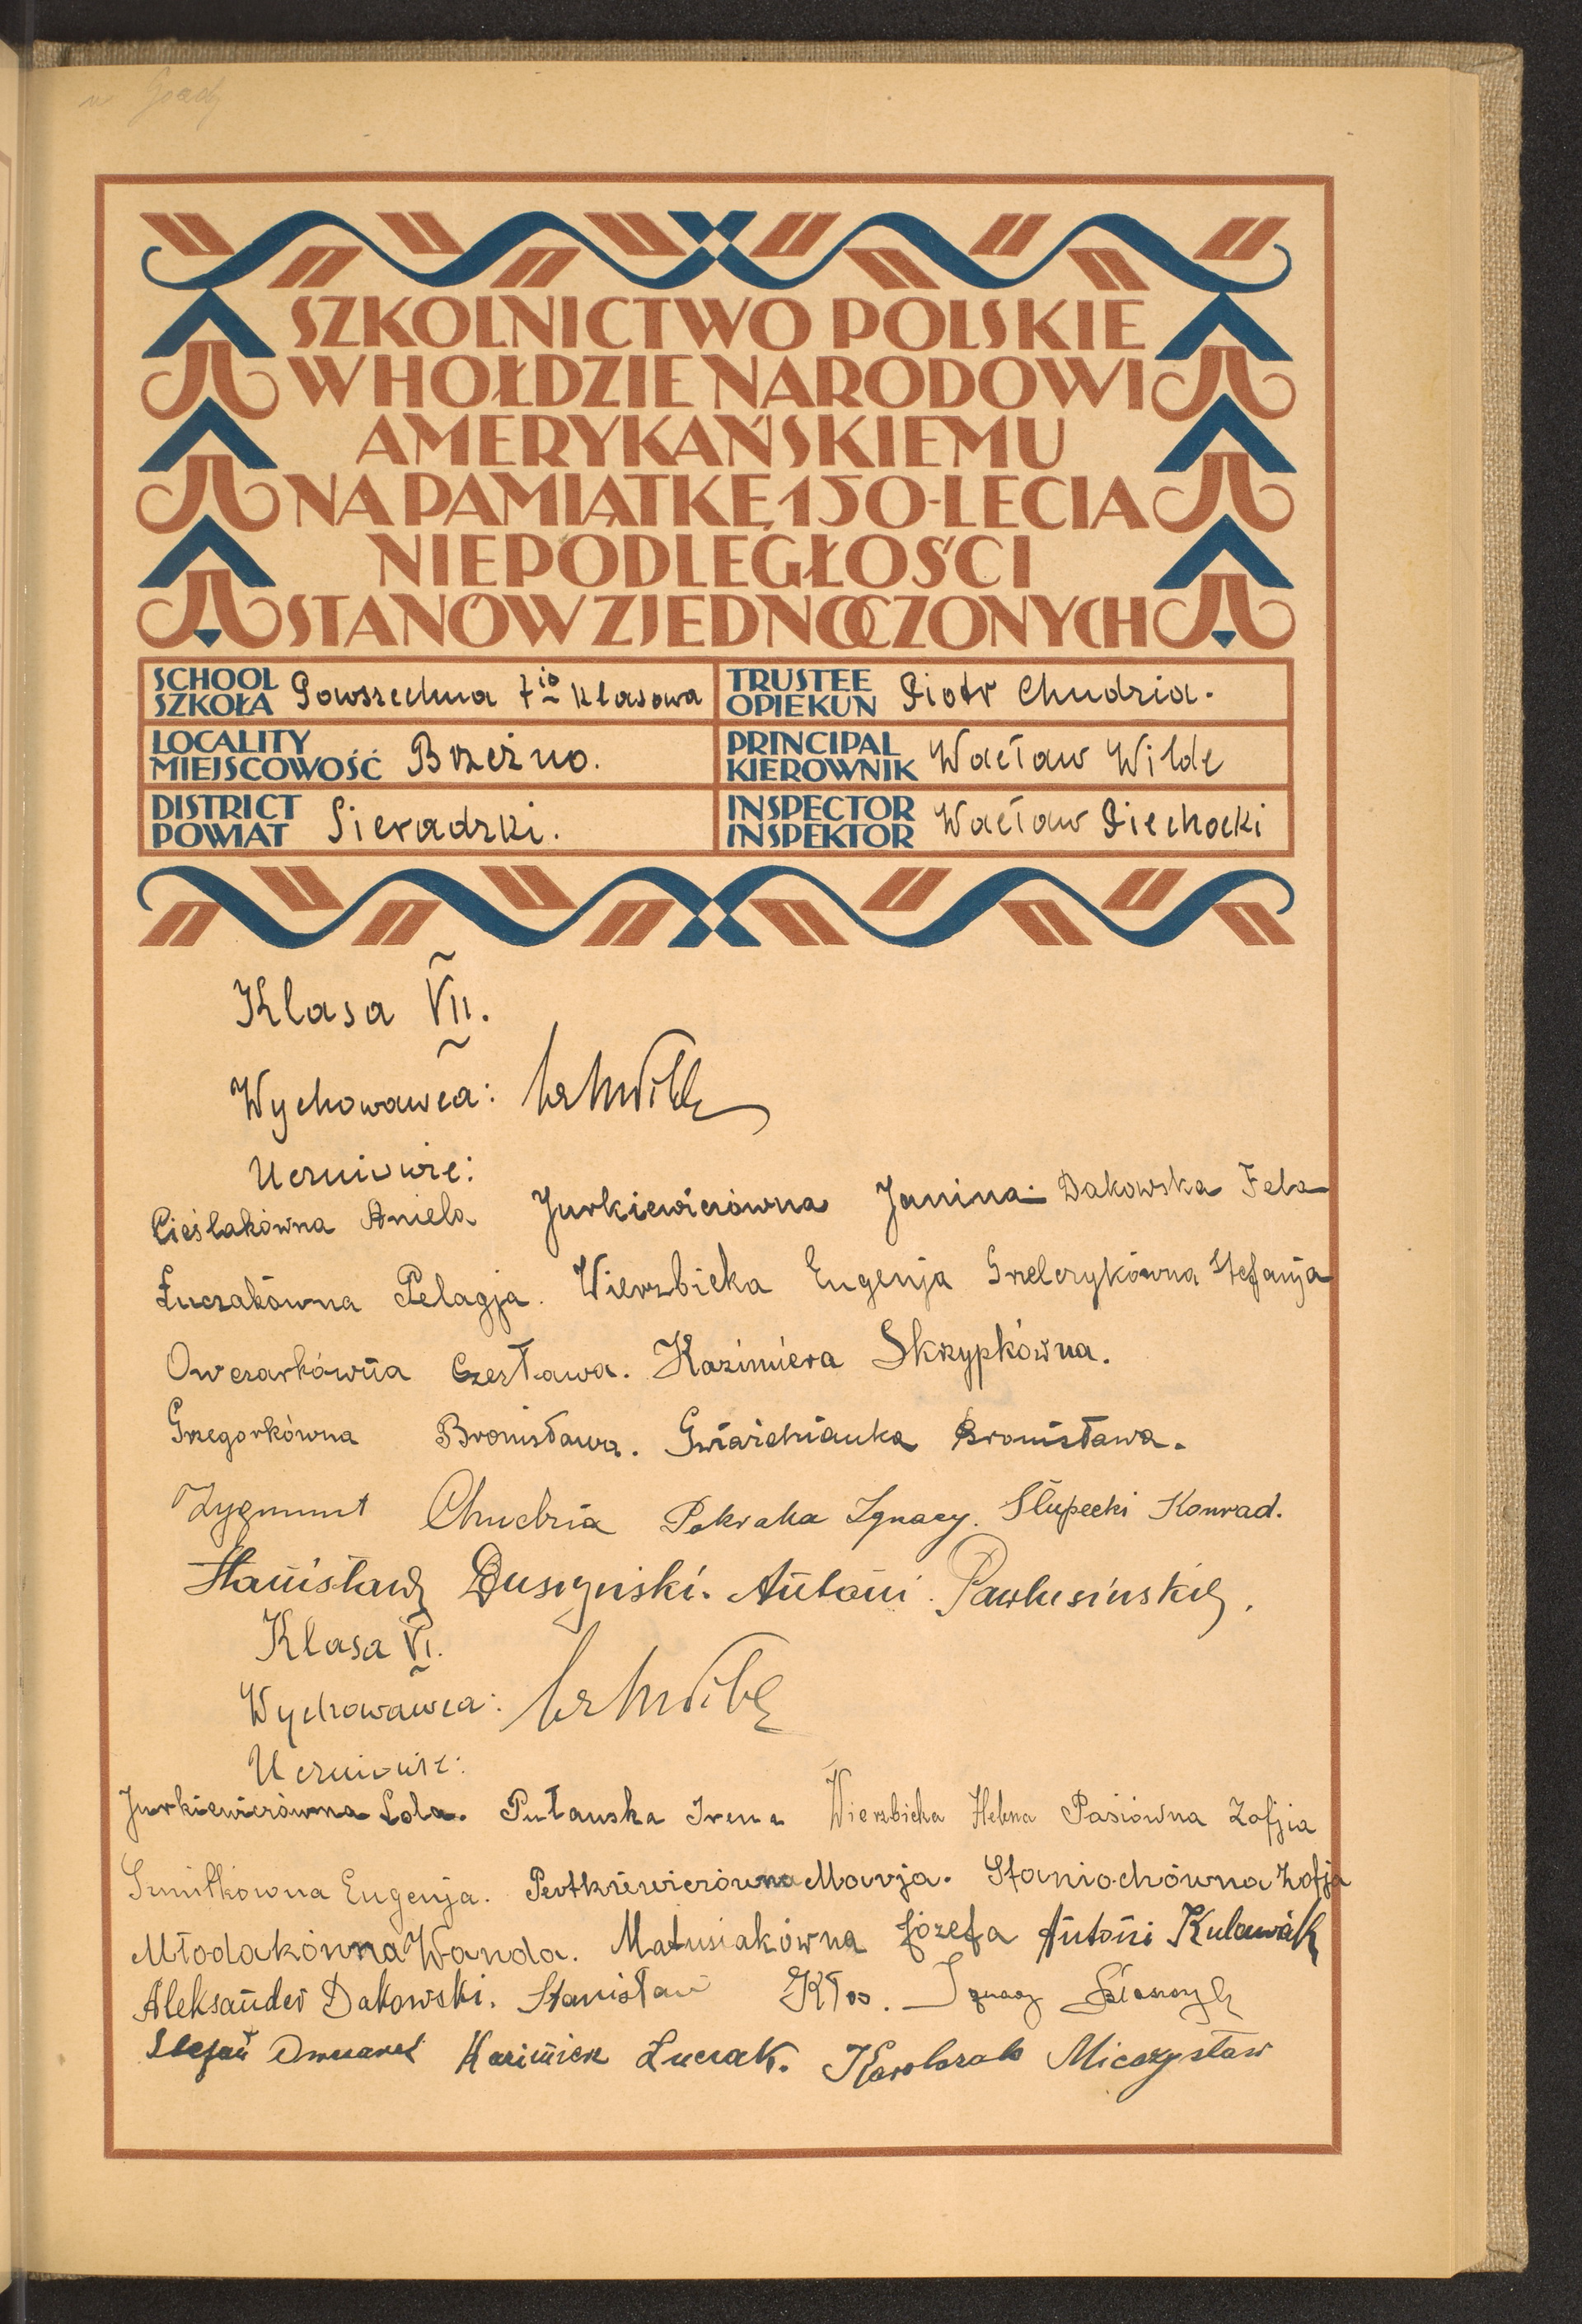 SZKOLNICTWO POLSKIE
W HOŁDZIE NARODOWI
AMERYKAŃSKIEMU
NA PAMIĄTKĘ 150-LECIA
NIEPODLEGŁOŚCI
STANÓW ZJEDNOCZONYCH
SCHOOL SZKOŁA Powszechna 7io klasowa
TRUSTEE OPIEKUN Piotr Chudzia.
LOCALITY MIEJSCOWOŚĆ Brzeźno.
PRINCIPAL KIEROWNIK Wacław Wilde
DISTRICT POWIAT Sieradzki.
INSPECTOR INSPEKTOR Wacław Piechocki
Klasa VII.
Wychowawca:
Uczniowie:
Cieślakówna Aniela Jurkiewiczówna Janina. Dakowska Fela
Łuczakówna Pelagja. Wierzbicka Eugenja Grzelczykówna Stefanja
Owczarkówna Czesława. Kazimiera Skrzypkówna.
Grzegorkówna Bronisława. Bronisława.
Zygmunt Chudzia Pokraka Ignacy. Słupecki Konrad.
Stanisław Duszyński. Antoni Pawlusiński.
Klasa VI.
Wychowawca:
Uczniowie:
Jurkiewiczówna Lola. Puławska Irena Wierzbicka Helena Pasiówna Zofjia
Szmitkówna Eugenja. Pertkiewiczówna Marja. Staniochówna Zofja
Młodakówna Wanda. Matusiakówna Józefa Antoni Kulawiak
Aleksander Dakowski. Stanisław Kłos. Ignacy
Stefan Owczarek Kazimierz Łuczak. Karolczak Mieczysław